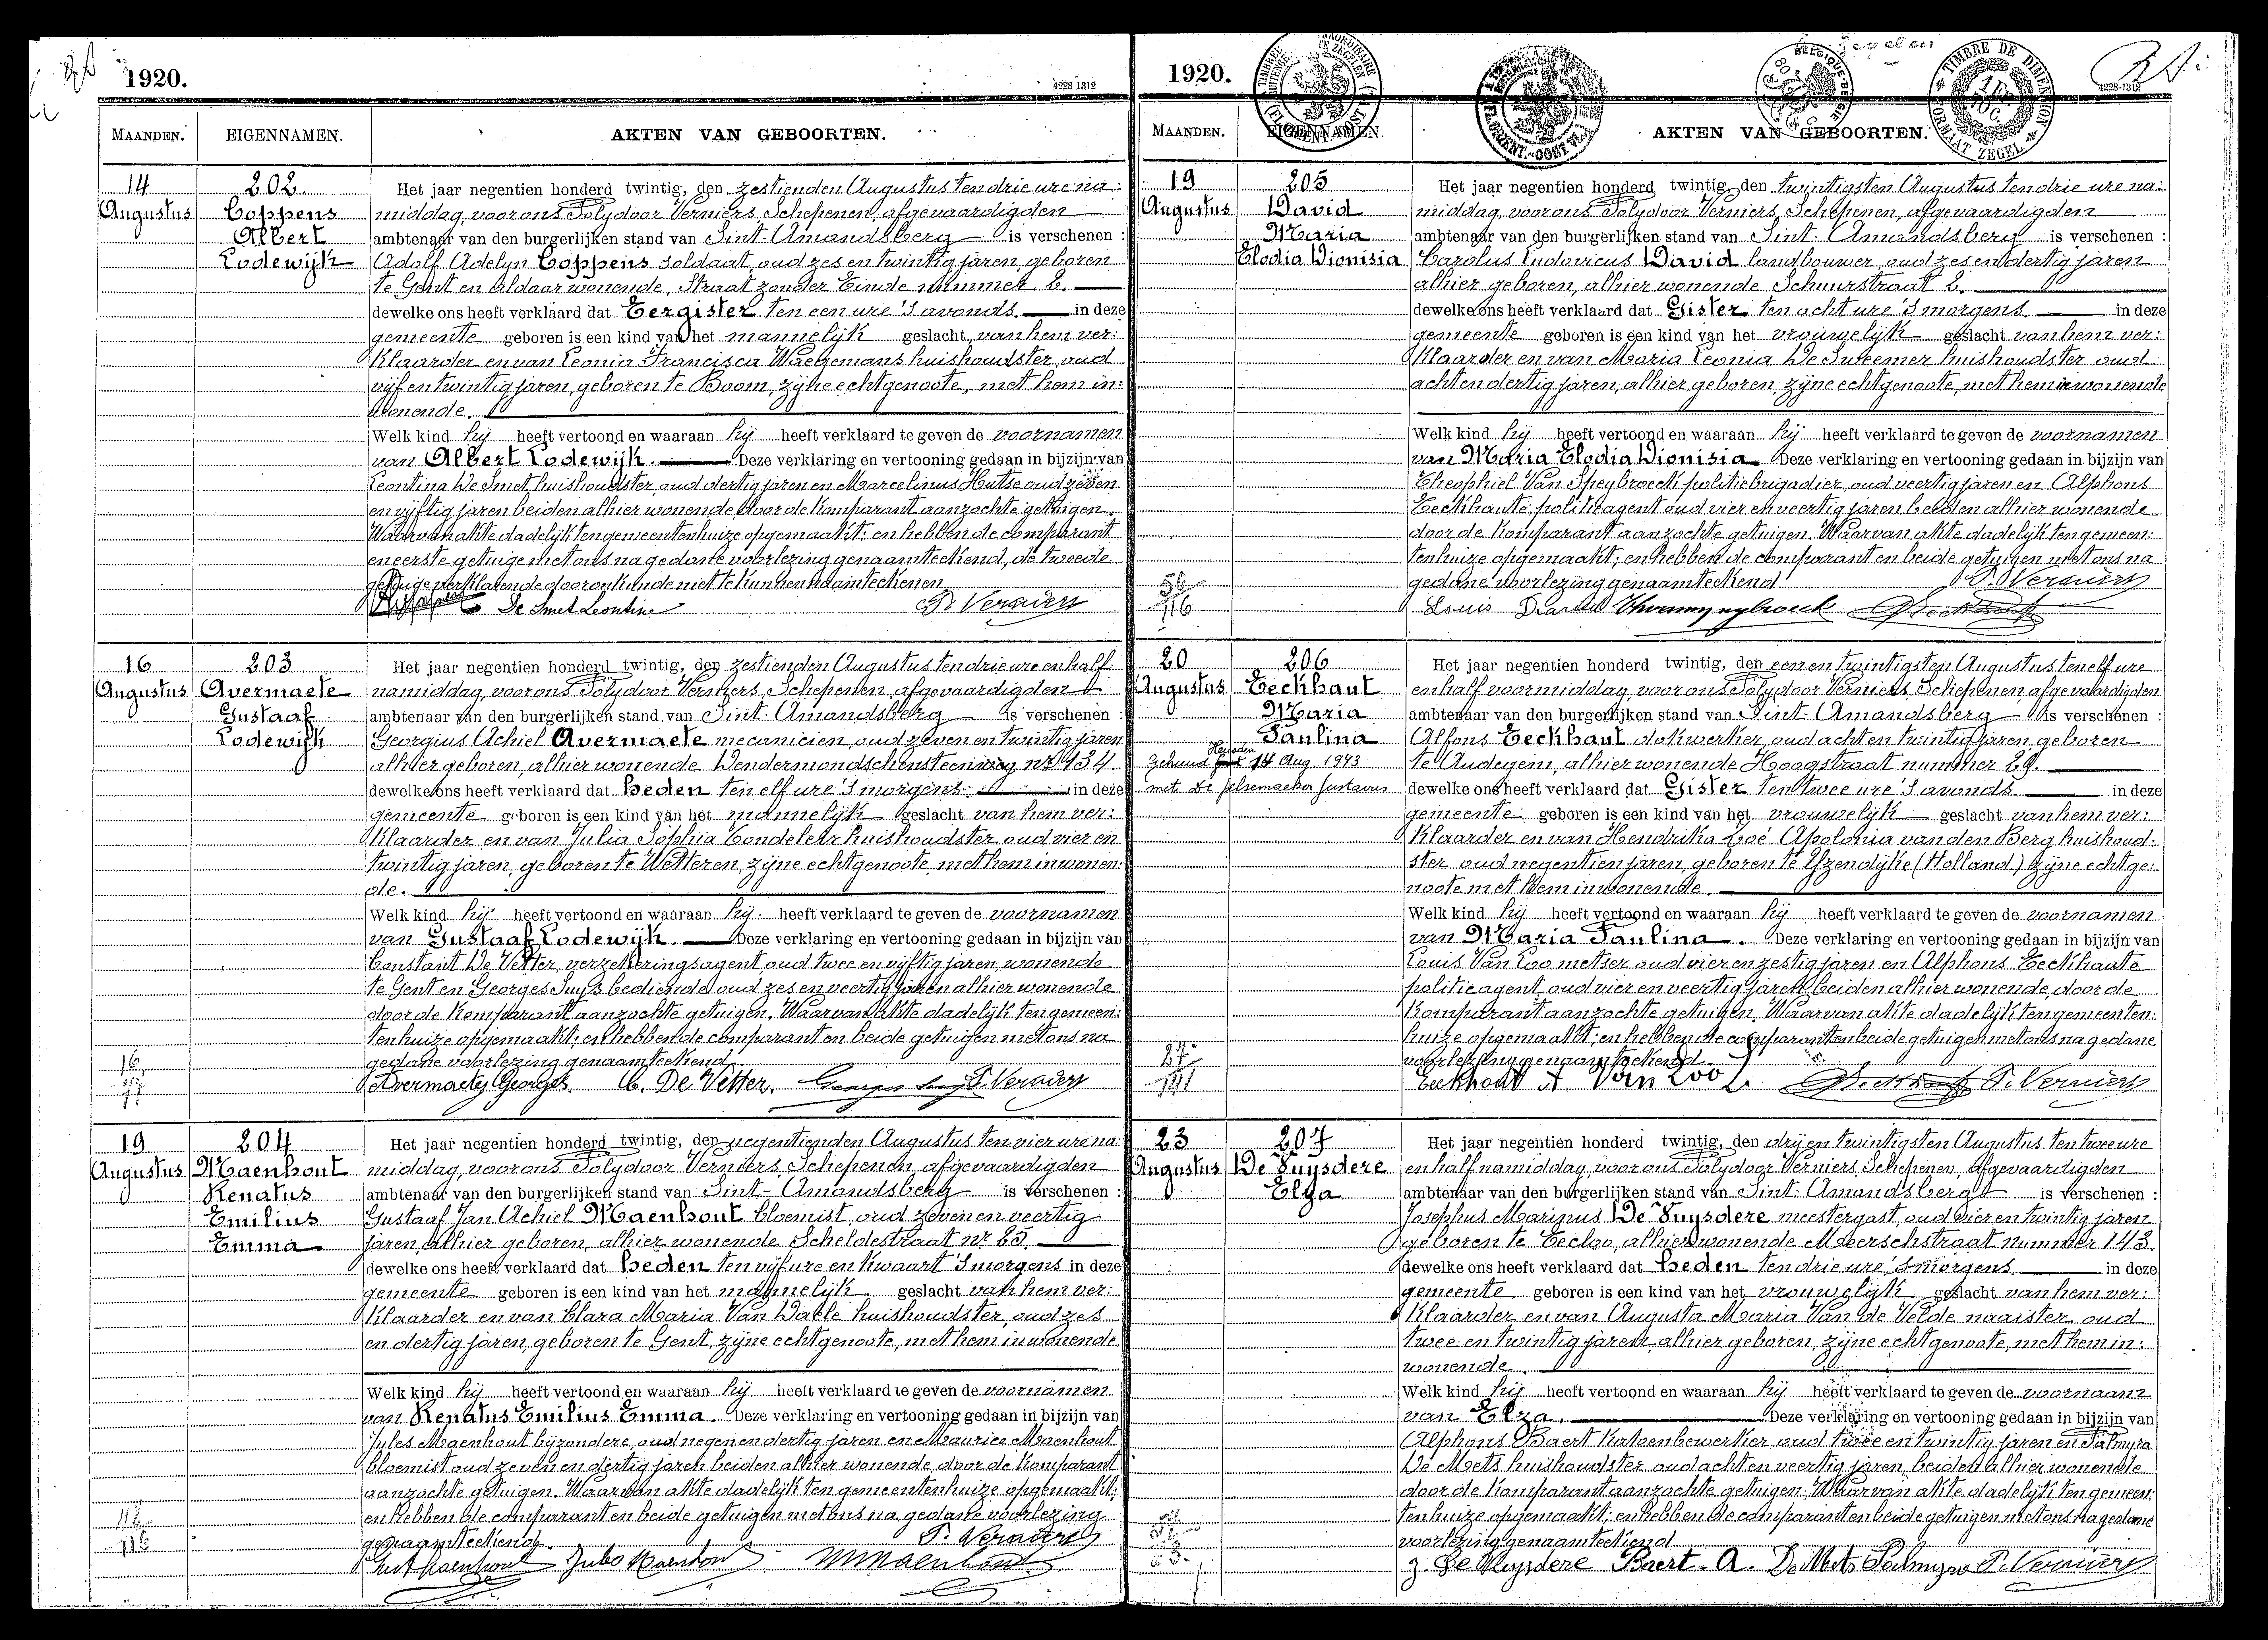 1920.
4228-1312
MAANDEN.
EIGENNAMEN.
AKTEN VAN GEBOORTEN.
14
Augustus
202
Coppens
Albert
Lodewijk
Het jaar negentien honderd twintig, den zestienden Augustus ten drie ure na:
middag, voor ons Polydoor Verniers, Schepenen, afgevaardigden
ambtenaar van den burgerlijken stand van Sint-Amandsberg is verschenen :
Adolf Adelyn Coppens soldaat, oud zes en twintig jaren, geboren
te Gent en aldaar wonende, Straat zonder Einde nummer 2.
dewelke ons heeft verklaard dat Eergister ten een ure 's avonds. in deze
gemeente geboren is een kind van het mannelijk geslacht van hem ver:
klaarder en van Leonia Francisca Waegemans huishoudster, oud
vijf en twintig jaren, geboren te Boom, zijne echtgenoote, met hem in:
wonende.
Welk kind hij heeft vertoond en waaraan hij heeft verklaard te geven de voornamen
van Albert Lodewijk. Deze verklaring en vertooning gedaan in bijzijn van
Leontina De Smet huishoudster, oud dertig jaren en Marcelinus Hutse oud zeven
en vijftig jaren beiden alhier wonende, door de komparant aanzochte getuigen.
Waarvan akte dadelijk ten gemeentenhuize opgemaakt; en hebben de comparant
en eerste getuige met ons na gedane voorlezing genaamteekend, de tweede
getuige verklarende door onkunde niet te kunnen naamteekenen.
De Smet Leontine P. Verniers
16
Augustus
203
Avermaete
Gustaaf
Lodewijk
Het jaar negentien honderd twintig, den zestienden Augustus ten drie ure en half
namiddag, voor ons Polydoor Verniers, Schepenen, afgevaardigden
ambtenaar van den burgerlijken stand van Sint-Amandsberg is verschenen :
Georgius Achiel Avermaete mecanicien, oud zeven en twintig jaren
alhier geboren, alhier wonende Dendermondschensteenweg nr 434.
dewelke ons heeft verklaard dat heden ten elf ure 's morgens. in deze
gemeente geboren is een kind van het mannelijk geslacht van hem ver:
klaarder en van Julia Sophia Condeleer huishoudster oud vier en
twintig jaren, geboren te Wetteren, zijne echtgenoote, met hem inwonen:
de.
Welk kind hij heeft vertoond en waaraan hij heeft verklaard te geven de voornamen
van Gustaaf Lodewijk. Deze verklaring en vertooning gedaan in bijzijn van
Constant De Vetter, verzekeringsagent, oud twee en vijftig jaren, wonende
te Gent en Georges Suys bediende oud zes en veertig jaren alhier wonende
door de komparant aanzochte getuigen. Waarvan akte dadelijk ten gemeen:
tenhuize opgemaakt; en hebben de comparant en beide getuigen met ons na
gedane voorlezing genaamteekend.
Avermaete Georges C. De Vetter. Georges Suys P. Verniers
19
Augustus
204
Maenhout
Renatus
Emilius
Emma
Het jaar negentien honderd twintig, den negentienden Augustus ten vier ure na:
middag, voor ons Polydoor Verniers, Schepenen, afgevaardigden
ambtenaar van den burgerlijken stand van Sint-Amandsberg is verschenen :
Gustaaf Jan Achiel Maenhout bloemist, oud zeven en veertig
jaren, alhier geboren, alhier wonende Scheldestraat nr 25.
dewelke ons heeft verklaard dat heden ten vijf ure en kwaart 's morgens in deze
gemeente geboren is een kind van het mannelijk geslacht van hem ver:
klaarder en van Clara Maria Van Daele huishoudster, oud zes
en dertig jaren, geboren te Gent, zijne echtgenoote, met hem inwonende.
Welk kind hij heeft vertoond en waaraan hij heeft verklaard te geven de voornamen
van Renatus Emilius Emma. Deze verklaring en vertooning gedaan in bijzijn van
Jules Maenhout bijzondere, oud negen en dertig jaren en Maurice Maenhout
bloemist oud zeven en dertig jaren beiden alhier wonende, door de komparant
aanzochte getuigen. Waarvan akte dadelijk ten gemeentenhuize opgemaakt;
en hebben de comparant en beide getuigen met ons na gedane voorlezing
genaamteekend. P. Verniers
Gust Maenhout Jules Maenhout M Maenhout
1920.
4228-1312
TIMBRE DE DIMENSION
FORMAAT ZEGEL
MAANDEN.
EIGENNAMEN.
AKTEN VAN GEBOORTEN.
19
Augustus
205
David
Maria
Elodia Dionisia
Het jaar negentien honderd twintig, den twintigsten Augustus ten drie ure na:
middag, voor ons Polydoor Verniers, Schepenen, afgevaardigden
ambtenaar van den burgerlijken stand van Sint-Amandsberg is verschenen :
Carolus Ludovicus David landbouwer, oud zes en dertig jaren
alhier geboren, alhier wonende Schuurstraat 2.
dewelke ons heeft verklaard dat Gister ten acht ure 's morgens. in deze
gemeente geboren is een kind van het vrouwelijk geslacht van hem ver:
klaarder en van Maria Leonia De Suteemer huishoudster oud
acht en dertig jaren, alhier geboren, zijne echtgenoote, met hem inwonende
Welk kind hij heeft vertoond en waaraan hij heeft verklaard te geven de voornamen
van Maria Elodia Dionisia Deze verklaring en vertooning gedaan in bijzijn van
Theophiel Van Speybroeck politiebrigadier, oud veertig jaren en Alphons
Eeckhaute, politieagent oud vier en veertig jaren beiden alhier wonende
door de komparant aanzochte getuigen. Waarvan akte dadelijk ten gemeen:
tenhuize opgemaakt; en hebben de comparant en beide getuigen met ons na
gedane voorlezing genaamteekend P. Verniers
Louis David
20
Augustus
206
Eeckhaut
Maria
Paulina
Gehuwd Heusden 14 Aug 1943
met De Pelsemaeker Gustavus
Het jaar negentien honderd twintig, den een en twintigsten Augustus ten elf ure
en half voormiddag, voor ons Polydoor Verniers Schepenen, afgevaardigden
ambtenaar van den burgerlijken stand van Sint-Amandsberg is verschenen :
Alfons Eeckhaut dokwerker, oud acht en twintig jaren, geboren
te Audegem, alhier wonende Hoogstraat nummer 29.
dewelke ons heeft verklaard dat Gister ten twee ure 's avonds in deze
gemeente geboren is een kind van het vrouwelijk geslacht van hem ver:
klaarder en van Hendrika Zoé Apolonia van den Berg huishoud:
ster oud negentien jaren, geboren te Yzendijke (Holland) zijne echtge:
noote met hem inwonende.
Welk kind hij heeft vertoond en waaraan hij heeft verklaard te geven de voornamen
van Maria Paulina. Deze verklaring en vertooning gedaan in bijzijn van
Louis Van Loo metser oud vier en zestig jaren en Alphons Eeckhaute
politieagent oud vier en veertig jaren, beiden alhier wonende, door de
komparant aanzochte getuigen. Waarvan akte dadelijk ten gemeenten:
huize opgemaakt; en hebben de comparant en beide getuigen met ons na gedane
voorlezing genaamteekend.
Eeckhout A Van Loo L. P. Verniers
23
Augustus
207
De Puysdere
Elza
Het jaar negentien honderd twintig, den drij en twintigsten Augustus ten twee ure
en half namiddag, voor ons Polydoor Verniers Schepenen, afgevaardigden
ambtenaar van den burgerlijken stand van Sint-Amandsberg is verschenen :
Josephus Marinus De Puysdere meestergast, oud vier en twintig jaren
geboren te Eecloo, alhier wonende Meerschstraat nummer 143.
dewelke ons heeft verklaard dat heden ten drie ure 's morgens. in deze
gemeente geboren is een kind van het vrouwelijk geslacht van hem ver:
klaarder en van Augusta Maria Van de Velde naaister, oud
twee en twintig jaren, alhier geboren, zijne echtgenoote, met hem in:
wonende.
Welk kind hij heeft vertoond en waaraan hij heeft verklaard te geven de voornaam
van Elza. Deze verklaring en vertooning gedaan in bijzijn van
Alphons Baert katoenbewerker oud twee en twintig jaren en Palmyra
De Mets huishoudster oud acht en veertig jaren, beiden alhier wonende
door de komparant aanzochte getuigen. Waarvan akte dadelijk ten gemeen:
tenhuize opgemaakt; en hebben de comparant en beide getuigen met ons na gedane
voorlezing genaamteekend
J. De Puysdere Baert. A. De Mets Palmyra P. Verniers